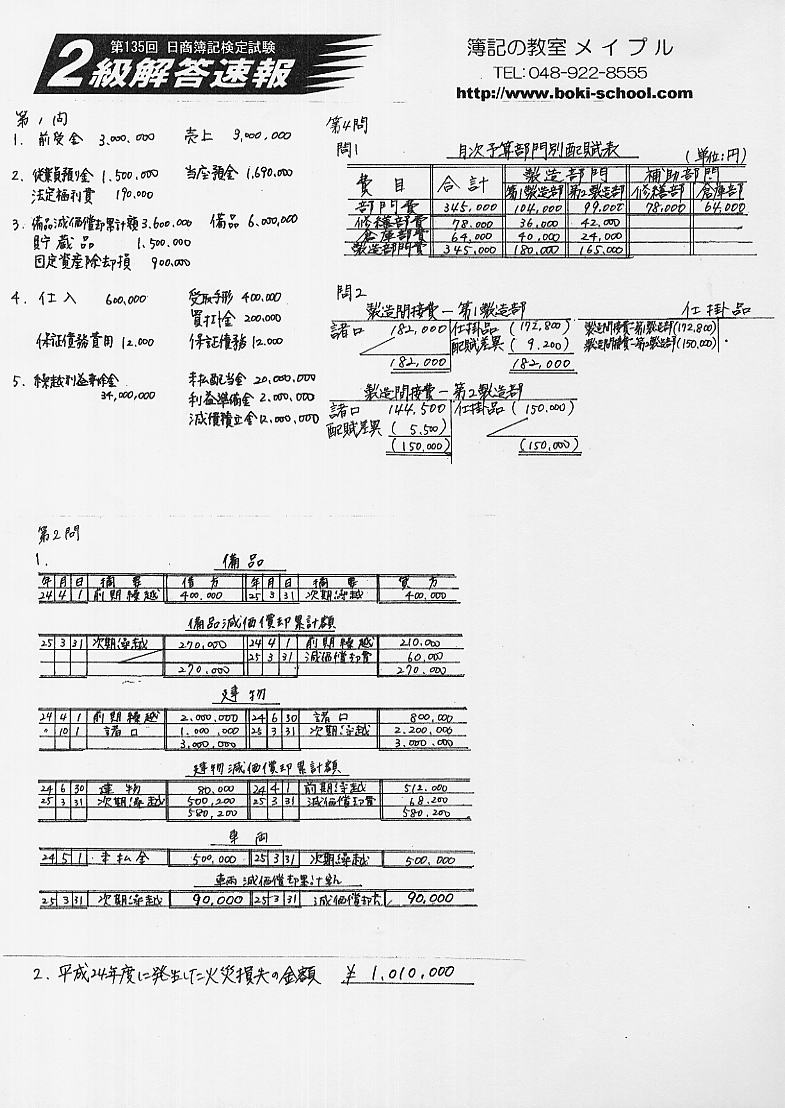 第135回 日商簿記検定試験
2級解答速報
簿記の教室 メイプル
TEL:048-922-8555
http://www.boki-school.com
第1問
1. 前受金 3,000,000 売上 3,000,000
2. 従業員預り金 1,500,000 当座預金 1,690,000
法定福利費 190,000
3. 備品減価償却累計額 3,600,000 備品 6,000,000
貯蔵品 1,500,000
固定資産除却損 900,000
4. 仕入 600,000 受取手形 400,000
買掛金 200,000
保証債務費用 12,000 保証債務 12,000
5. 繰越利益剰余金 未払配当金 20,000,000
34,000,000 利益準備金 2,000,000
減債積立金 12,000,000
第4問
問1 月次予算部門別配賦表 (単位:円)
費目 合計 製造部門 補助部門
第1製造部 第2製造部 修繕部 倉庫部
部門費 345,000 104,000 99,000 78,000 64,000
修繕部費 78,000 36,000 42,000
倉庫部費 64,000 40,000 24,000
製造部門費 345,000 180,000 165,000
問2
製造間接費-第1製造部 仕掛品
諸口 182,000 仕掛品 (172,800) 製造間接費-第1製造部 (172,800)
配賦差異 (9,200) 製造間接費-第2製造部 (150,000)
182,000 182,000
製造間接費-第2製造部
諸口 144,500 仕掛品 (150,000)
配賦差異 (5,500)
(150,000) (150,000)
第2問
1. 備品
年 月 日 摘要 借方 年 月 日 摘要 貸方
24 4 1 前期繰越 400,000 25 3 31 次期繰越 400,000
備品減価償却累計額
25 3 31 次期繰越 270,000 24 4 1 前期繰越 210,000
25 3 31 減価償却費 60,000
270,000 270,000
建物
24 4 1 前期繰越 2,000,000 24 6 30 諸口 800,000
〃 10 1 諸口 1,000,000 25 3 31 次期繰越 2,200,000
3,000,000 3,000,000
建物減価償却累計額
24 6 30 建物 80,000 24 4 1 前期繰越 512,000
25 3 31 次期繰越 500,200 25 3 31 減価償却費 68,200
580,200 580,200
車両
24 5 1 未払金 500,000 25 3 31 次期繰越 500,000
車両減価償却累計額
25 3 31 次期繰越 90,000 25 3 31 減価償却費 90,000
2. 平成24年度に発生した火災損失の金額 ¥ 1,010,000